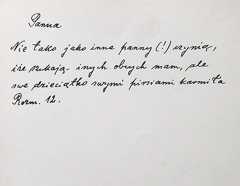 Panna
Nie tako jako inne panny (!) czynią,
iże szukają innych obcych mam, ale
swe dzieciątko swymi piersiami karmiła
Rozm. 12.